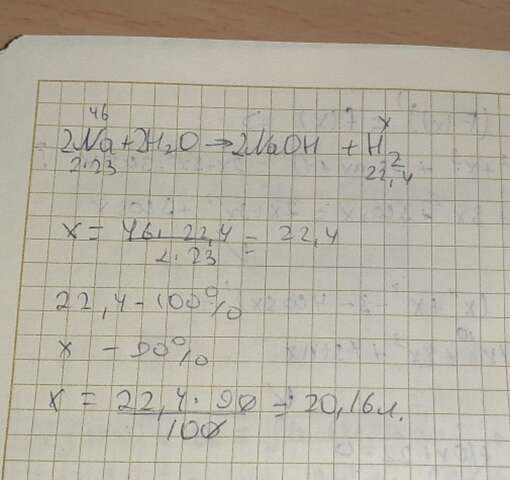 46 x
2Na + 2H₂O → 2NaOH + H₂
2·23 22,4
x = 46 · 22,4 / 2·23 = 22,4
22,4 - 100%
x - 90%
x = 22,4 · 90 / 100 = 20,16л.